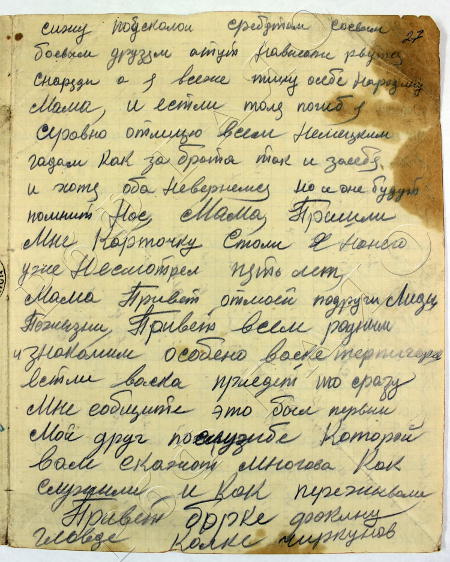 27
сижу подскалой среддтам соевым
боевым друзям атут Нависоте рвутся
снаряди а я всеже пишу осебе Народину
Мама, и естли толя погиб я
серовно отпищю всем Немецким
гадам Как за брата так и засебя,
и хотя оба Невернемся но и оне будут
помнит Нас, Мама, Пришли
Мне Карточку Столи я Нанего
уже Несмотрел пять лет,
Мама Привет отмоей подруги Лизы
Привет всем родним
и знакомим особено васке
естли васка приедет то сразу
Мне собщите это был первий
Мой друг послузбе Которой
вам скажот многова Как
служили и Как переживали
Привет борке фокину
Колке чиркунов